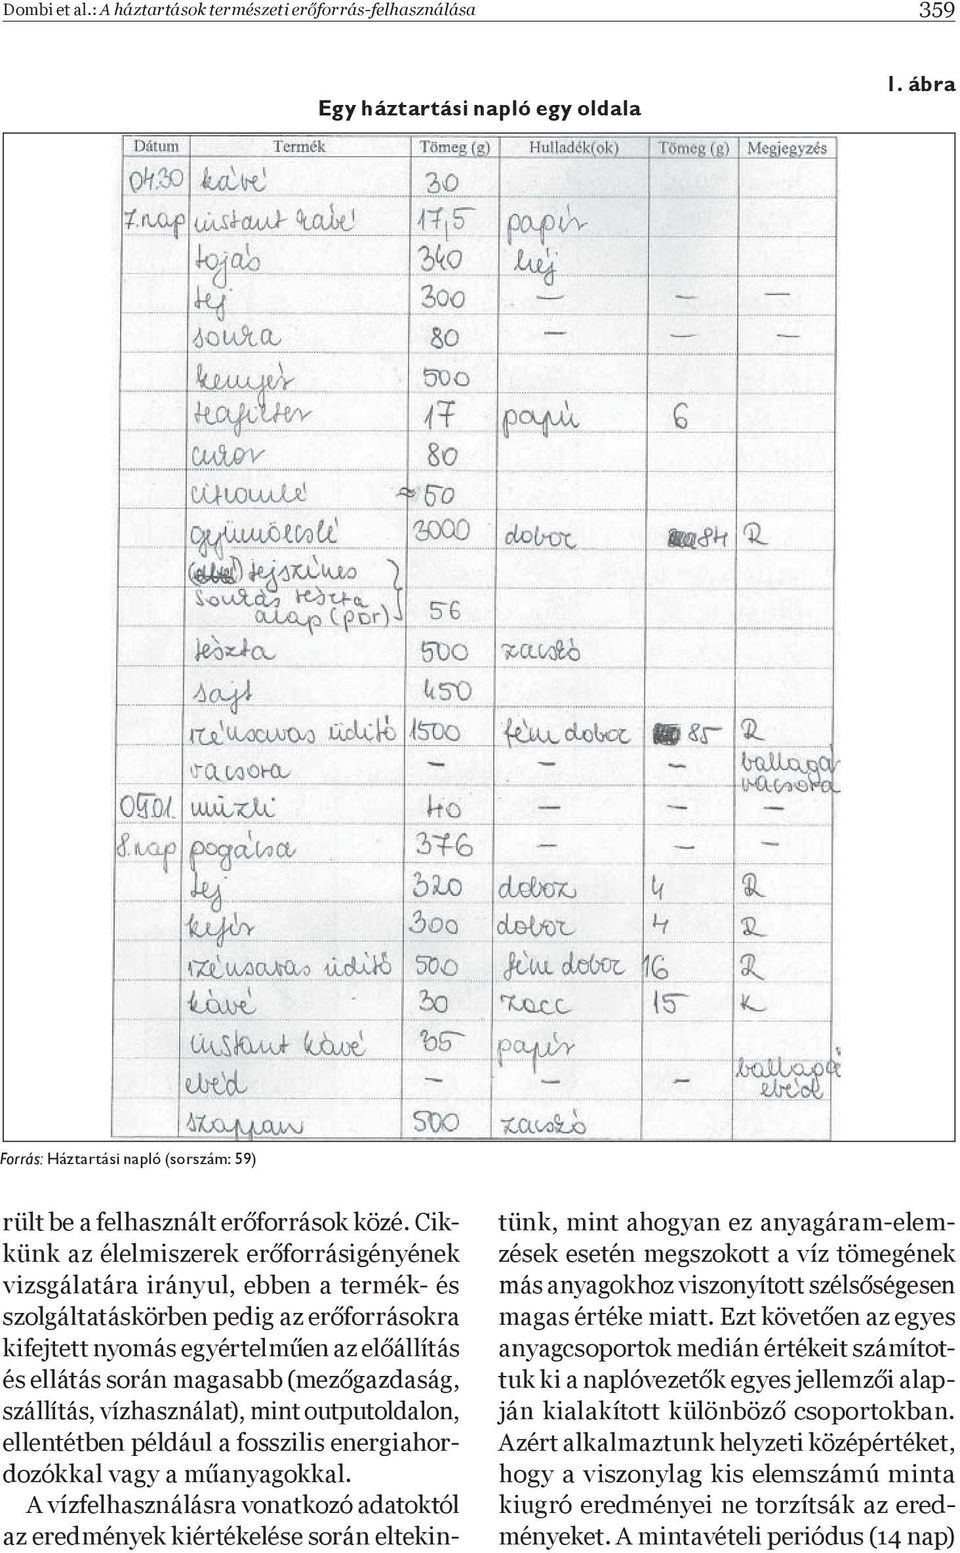 Dombi et al.: A háztartások természeti erőforrás-felhasználása 359
1. ábra
Egy háztartási napló egy oldala
Dátum Termék Tömeg (g) Hulladék(ok) Tömeg (g) Megjegyzés
04.30 kávé 30
7.nap instant kávé 17,5 papír
tojás 340 héj
tej 300 - - -
sonka 80 - - -
kenyér 500
teafilter 17 papír 6
cukor 80
citromlé ≈50
gyümölcslé 3000 doboz 84 R
tejszínes }
sonkás tészta
alap (por) 56
tészta 500 zacskó
sajt 450
szénsavas üdítő 1500 fém doboz 85 R
vacsora - - - ballagá
vacsora
05.01. müzli 40 - - -
8.nap pogácsa 376 - - -
tej 320 doboz 4 R
kefír 300 doboz 4 R
szénsavas üdítő 500 fém doboz 16 R
kávé 30 zacc 15 K
instant kávé 35 papír
ebéd - - - ballagá
ebéd
szappan 500 zacskó
Forrás: Háztartási napló (sorszám: 59)
rült be a felhasznált erőforrások közé. Cik-
künk az élelmiszerek erőforrásigényének
vizsgálatára irányul, ebben a termék- és
szolgáltatáskörben pedig az erőforrásokra
kifejtett nyomás egyértelműen az előállítás
és ellátás során magasabb (mezőgazdaság,
szállítás, vízhasználat), mint outputoldalon,
ellentétben például a fosszilis energiahor-
dozókkal vagy a műanyagokkal.
A vízfelhasználásra vonatkozó adatoktól
az eredmények kiértékelése során eltekin-
tünk, mint ahogyan ez anyagáram-elem-
zések esetén megszokott a víz tömegének
más anyagokhoz viszonyított szélsőségesen
magas értéke miatt. Ezt követően az egyes
anyagcsoportok medián értékeit számítot-
tuk ki a naplóvezetők egyes jellemzői alap-
ján kialakított különböző csoportokban.
Azért alkalmaztunk helyzeti középértéket,
hogy a viszonylag kis elemszámú minta
kiugró eredményei ne torzítsák az ered-
ményeket. A mintavételi periódus (14 nap)